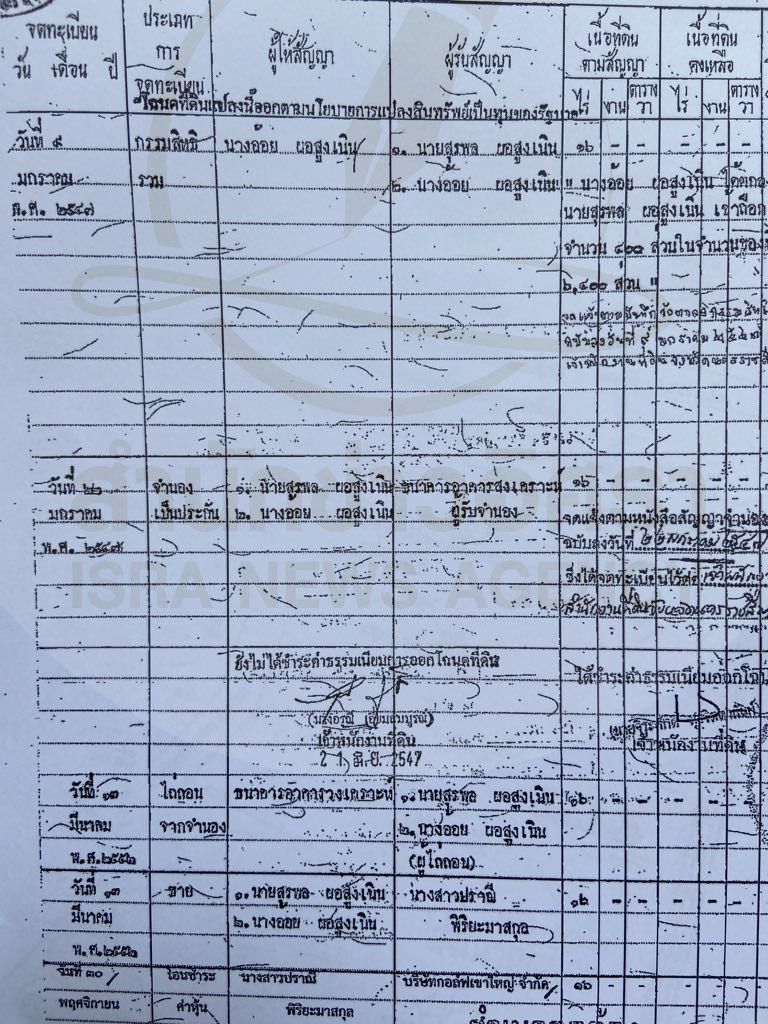 จดทะเบียน
วัน เดือน ปี
ประเภท
การ
จดทะเบียน
ผู้ให้สัญญา
ผู้รับสัญญา
เนื้อที่ดิน
ตามสัญญา
ไร่ งาน ตาราง วา
เนื้อที่ดิน
คงเหลือ
ไร่ งาน ตาราง วา
"โฉนดที่ดินแปลงนี้ออกตามนโยบายการแปลงสินทรัพย์เป็นทุนของรัฐบาล
วันที่ ๙ กรรมสิทธิ นางอ๋อย ผอสูงเนิน ๑. นายสุรพล ผอสูงเนิน ๑๖ - - - - -
มกราคม รวม ๒. นางอ๋อย ผอสูงเนิน " นางอ๋อย ผอสูงเนิน ได้ตกลง
พ.ศ. ๒๕๔๗ นายสุรพล ผอสูงเนิน เข้าถือก
จำนวน ๔๐๐ ส่วนในจำนวนของ
๖,๔๐๐ ส่วน "
ฉบับลงวันที่ ๙ มกราคม ๒๕๔๗
วันที่ ๒๒ จำนอง ๑. นายสุรพล ผอสูงเนิน ธนาคารอาคารสงเคราะห์ ๑๖ - - - - -
มกราคม เป็นประกัน ๒. นางอ๋อย ผอสูงเนิน ผู้รับจำนอง จดแจ้งตามหนังสือสัญญาจำนอง
พ.ศ. ๒๕๔๗ ฉบับลงวันที่ ๒๒ มกราคม ๒๕๔๗
ซึ่งได้จดทะเบียนไว้ต่อ
สำนักงานที่ดิน
ISRA NEWS AGENCY
ยังไม่ได้ชำระค่าธรรมเนียมการออกโฉนดที่ดิน
เจ้าพนักงานที่ดิน
2 1 มิ.ย. 2547
ได้ชำระค่าธรรมเนียมออกโฉน
เจ้าพนักงานที่ดิน
วันที่ ๑๓ ไถ่ถอน ธนาคารอาคารสงเคราะห์ ๑. นายสุรพล ผอสูงเนิน ๑๖ - - - - -
มีนาคม จากจำนอง ๒. นางอ๋อย ผอสูงเนิน
พ.ศ. ๒๕๕๒ (ผู้ไถ่ถอน)
วันที่ ๑๓ ขาย ๑. นายสุรพล ผอสูงเนิน นางสาวปราณี ๑๖ - - - - -
มีนาคม ๒. นางอ๋อย ผอสูงเนิน พิริยะมาสกุล
พ.ศ. ๒๕๕๒
วันที่ ๓๐ โอนชำระ นางสาวปราณี บริษัทกอล์ฟเขาใหญ่ จำกัด ๑๖ - - - - -
พฤศจิกายน ค่าหุ้น พิริยะมาสกุล